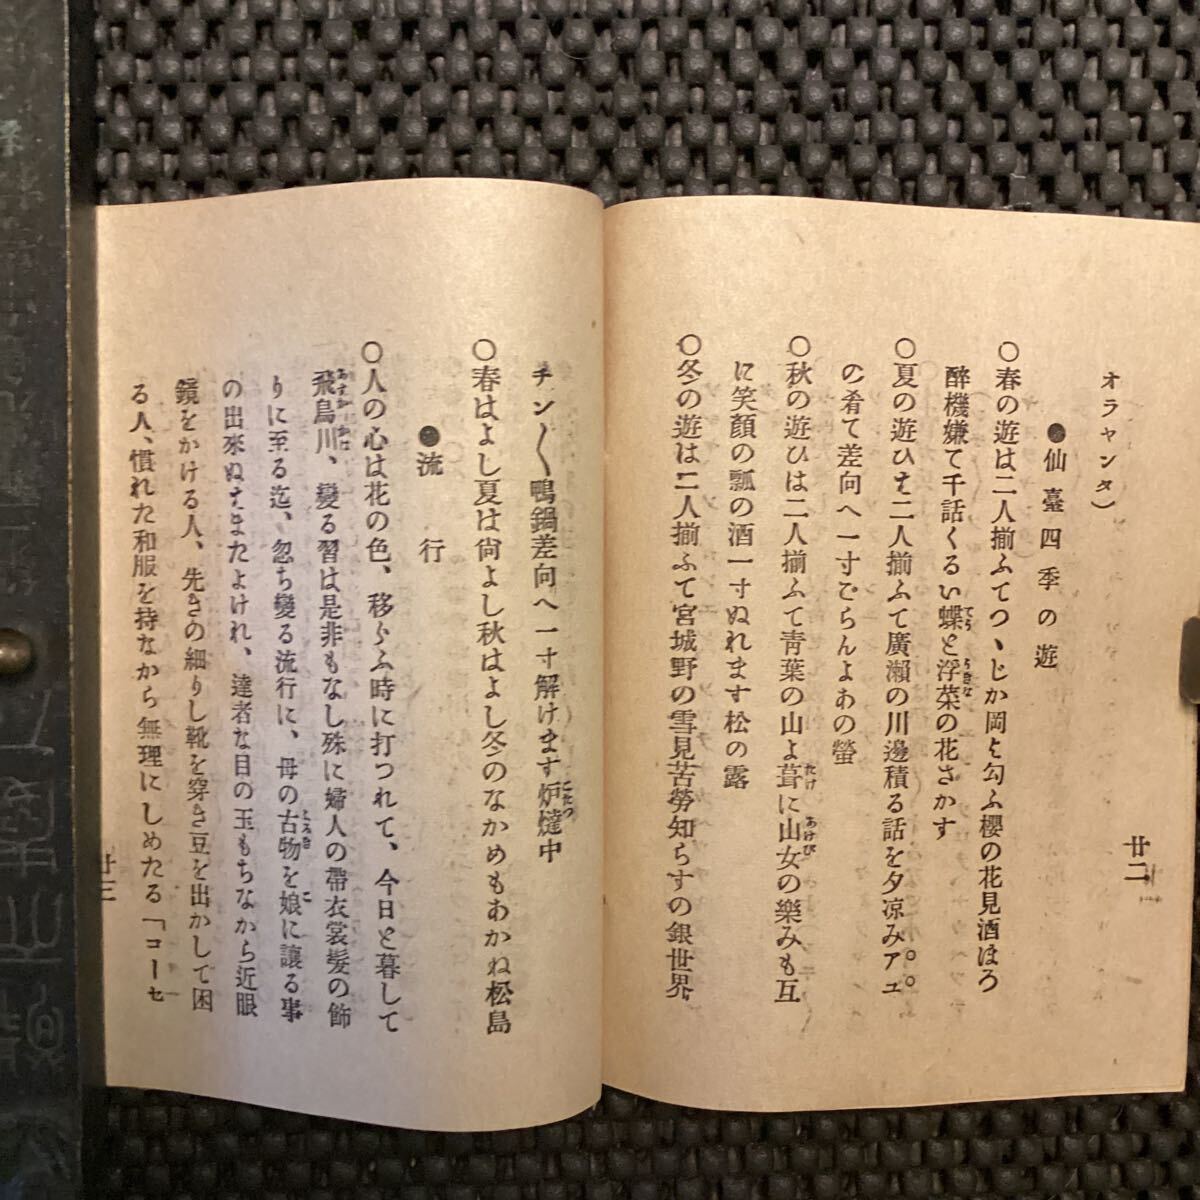 オラャンタ）
●仙臺四季の遊
○春の遊は二人揃ふてつゝじか岡と匂ふ櫻の花見酒ほろ
醉機嫌て千話くるい蝶と浮菜の花さかす
○夏の遊ひは二人揃ふて廣瀬の川邊積る話を夕凉みアユ
の肴て差向へ一寸ごらんよあの螢
○秋の遊ひは二人揃ふて靑葉の山よ茸に山女の樂みも互
に笑顔の瓢の酒一寸ぬれます松の露
○冬の遊は二人揃ふて宮城野の雪見苦勞知らすの銀世界
廿二
チン〱鴨鍋差向へ一寸解けます炉燵中
○春はよし夏は尚よし秋はよし冬のなかめもあかね松島
●流行
○人の心は花の色、移らふ時に打つれて、今日と暮して
飛鳥川、變る習は是非もなし殊に婦人の帶衣裳髮の飾
りに至る迄、忽ち變る流行に、母の古物を娘に讓る事
の出來ぬはまたよけれ、達者な目の玉もちなから近眼
鏡をかける人、先きの細りし靴を穿き豆を出かして困
る人、慣れた和服を持なから無理にしめたる「コーセ
廿三